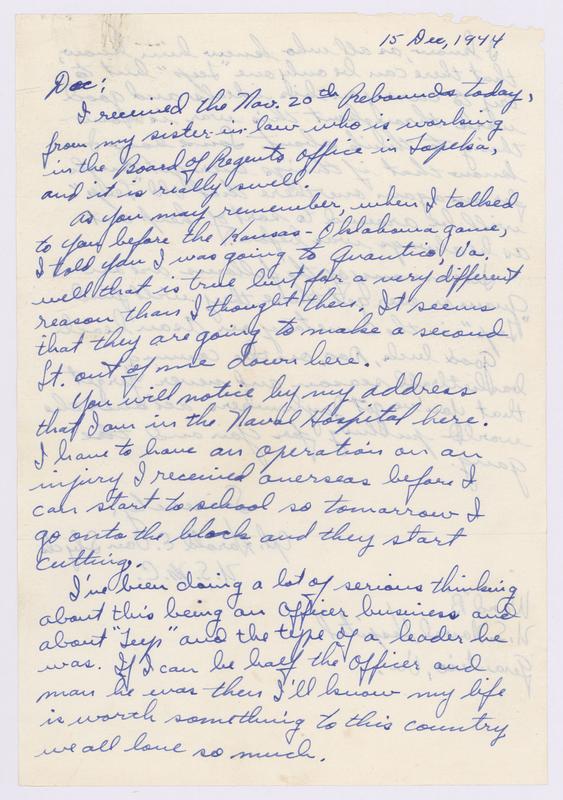 15 Dec, 1944
Doc:
I received the Nov. 20th Rebounds today,
from my sister-in-law who is working
in the Board of Regents office in Topeka,
and it is really swell.
As you may remember, when I talked
to you before the Kansas-Oklahoma game,
I told you I was going to Quantico, Va.
well that is true but for a very different
reason than I thought then. It seems
that they are going to make a second
Lt. out of me down here.
You will notice by my address
that I am in the Naval Hospital here.
I have to have an operation on an
injury I received overseas before I
can start to school so tomorrow I
go onto the block and they start
cutting.
I've been doing a lot of serious thinking
about this being an officer business and
about "Teep" and the type of a leader he
was. If I can be half the officer and
man he was then I'll know my life
is worth something to this country
we all love so much.